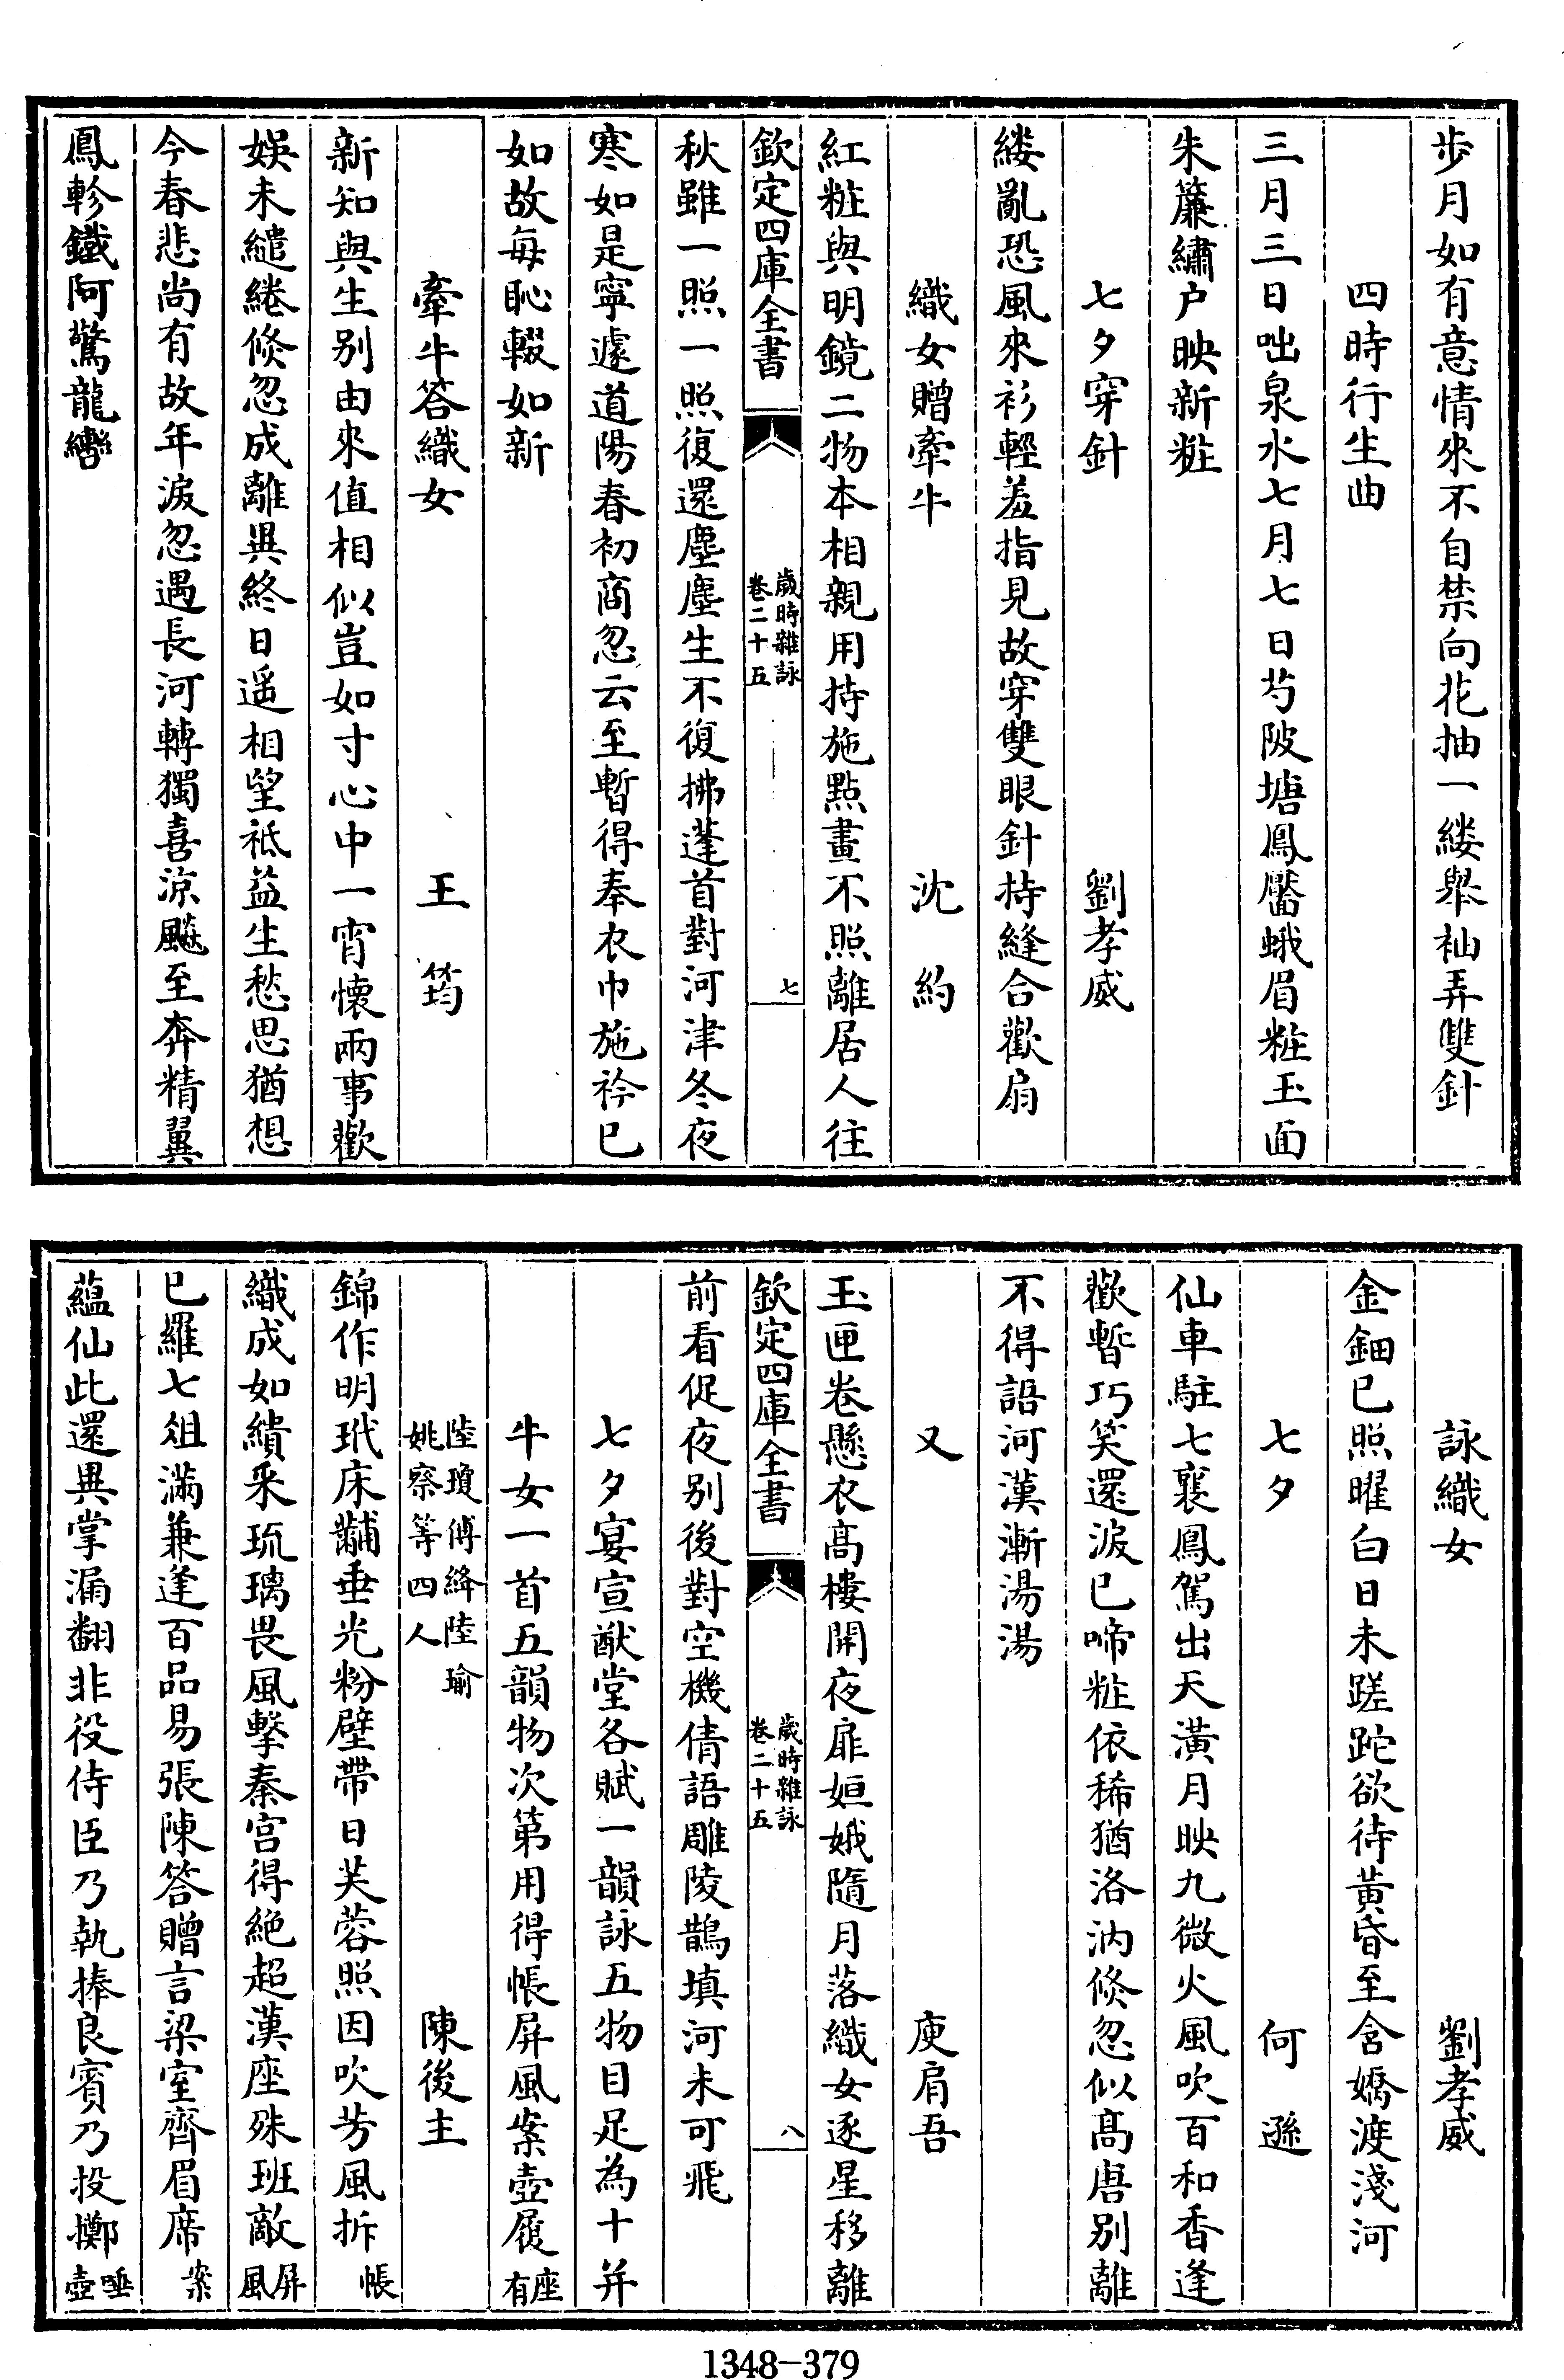 步月如有意情來不自禁向花抽一縷舉袖弄雙針
四時行生曲
三月三日咄泉水七月七日芍陂塘鳳靨蛾眉粧玉面
朱簾繡户映新粧
七夕穿針 劉孝威
縷亂恐風來衫輕羞指見故穿雙眼針持縫合歡扇
織女贈牽牛 沈約
紅粧與明鏡二物本相親用持施點畫不照離居人往
欽定四庫全書 歲時雜詠 卷二十五 七
秋雖一照一照復還塵塵生不復拂蓬首對河津冬夜
寒如是寧遽道陽春初商忽云至暫得奉衣巾施衿已
如故每恥輟如新
牽牛答織女 王筠
新知與生别由來值相似豈如寸心中一宵懐兩事歡
娱未繾綣倐忽成離異終日遥相望祗益生愁思猶想
今春悲尚有故年淚忽遇長河轉獨喜涼飈至奔精翼
鳳軫鐵阿驚龍轡
詠織女 劉孝威
金鈿已照曜白日未蹉跎欲待黄昏至含嬌渡淺河
七夕 何遜
仙車駐七襄鳳駕出天潢月映九微火風吹百和香逢
歡暫巧笑還淚已啼粧依稀猶洛汭倐忽似髙唐别離
不得語河漢漸湯湯
又 庾肩吾
玉匣卷懸衣髙樓開夜扉姮娥隨月落織女逐星移離
欽定四庫全書 歲時雜詠 卷二十五 八
前看促夜别後對空機倩語雕陵鵲填河未可飛
七夕宴宣猷堂各賦一韻詠五物目足為十并
牛女一首五韻物次第用得帳屏風案壺履 座有
陸瓊傅縡陸瑜
姚察等四人 陳後主
錦作明玳床黼垂光粉壁帶日芙蓉照因吹芳風拆 帳
織成如績采琉璃畏風擊秦宫得絶超漢座殊班敵 屏風
已羅七俎滿兼逢百品易張陳答贈言梁室齊眉席 案
蘊仙此還異掌漏翻非役侍臣乃執捧良賓乃投擲 唾壺
1348-379